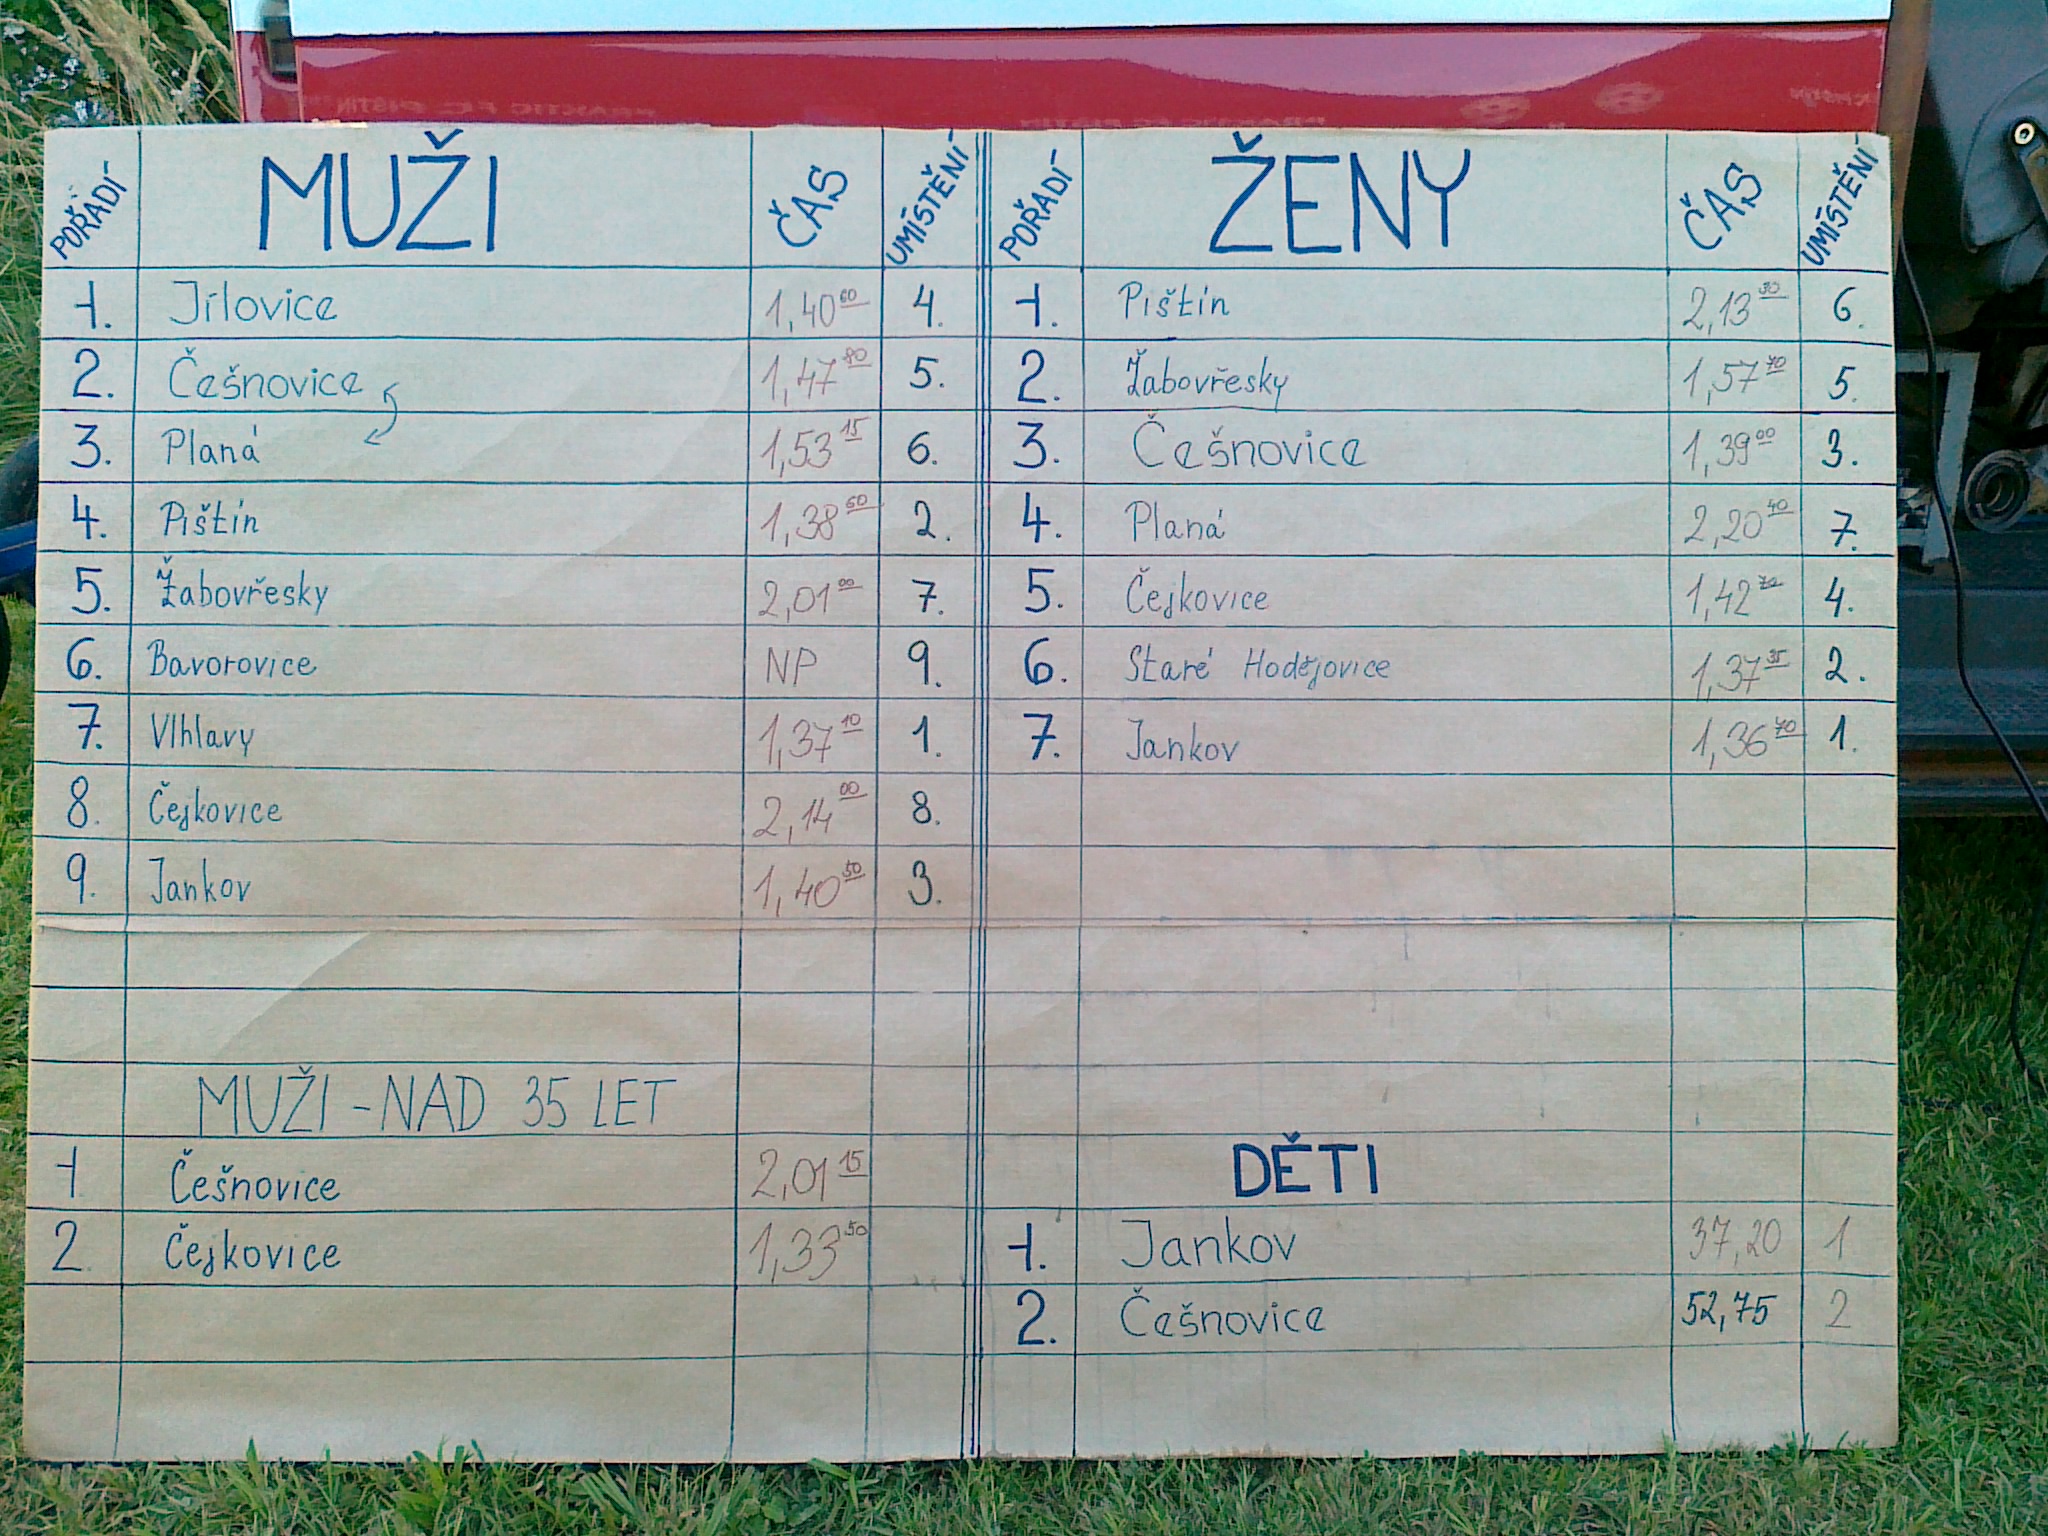 POŘADÍ MUŽI ČAS UMÍSTĚNÍ
1. Jílovice 1,40 60 4.
2. Češnovice 1,47 80 5.
3. Planá 1,53 15 6.
4. Pištín 1,38 60 2.
5. Žabovřesky 2,01 00 7.
6. Bavorovice NP 9.
7. Vlhlavy 1,37 10 1.
8. Čejkovice 2,14 00 8.
9. Jankov 1,40 50 3.
MUŽI - NAD 35 LET
1 Češnovice 2,01 15
2. Čejkovice 1,33 50
POŘADÍ ŽENY ČAS UMÍSTĚNÍ
1. Pištín 2,13 50 6.
2. Žabovřesky 1,57 70 5.
3. Češnovice 1,39 00 3.
4. Planá 2,20 40 7.
5. Čejkovice 1,42 70 4.
6. Staré Hodějovice 1,37 35 2.
7. Jankov 1,36 70 1.
DĚTI
1. Jankov 37,20 1
2. Češnovice 52,75 2